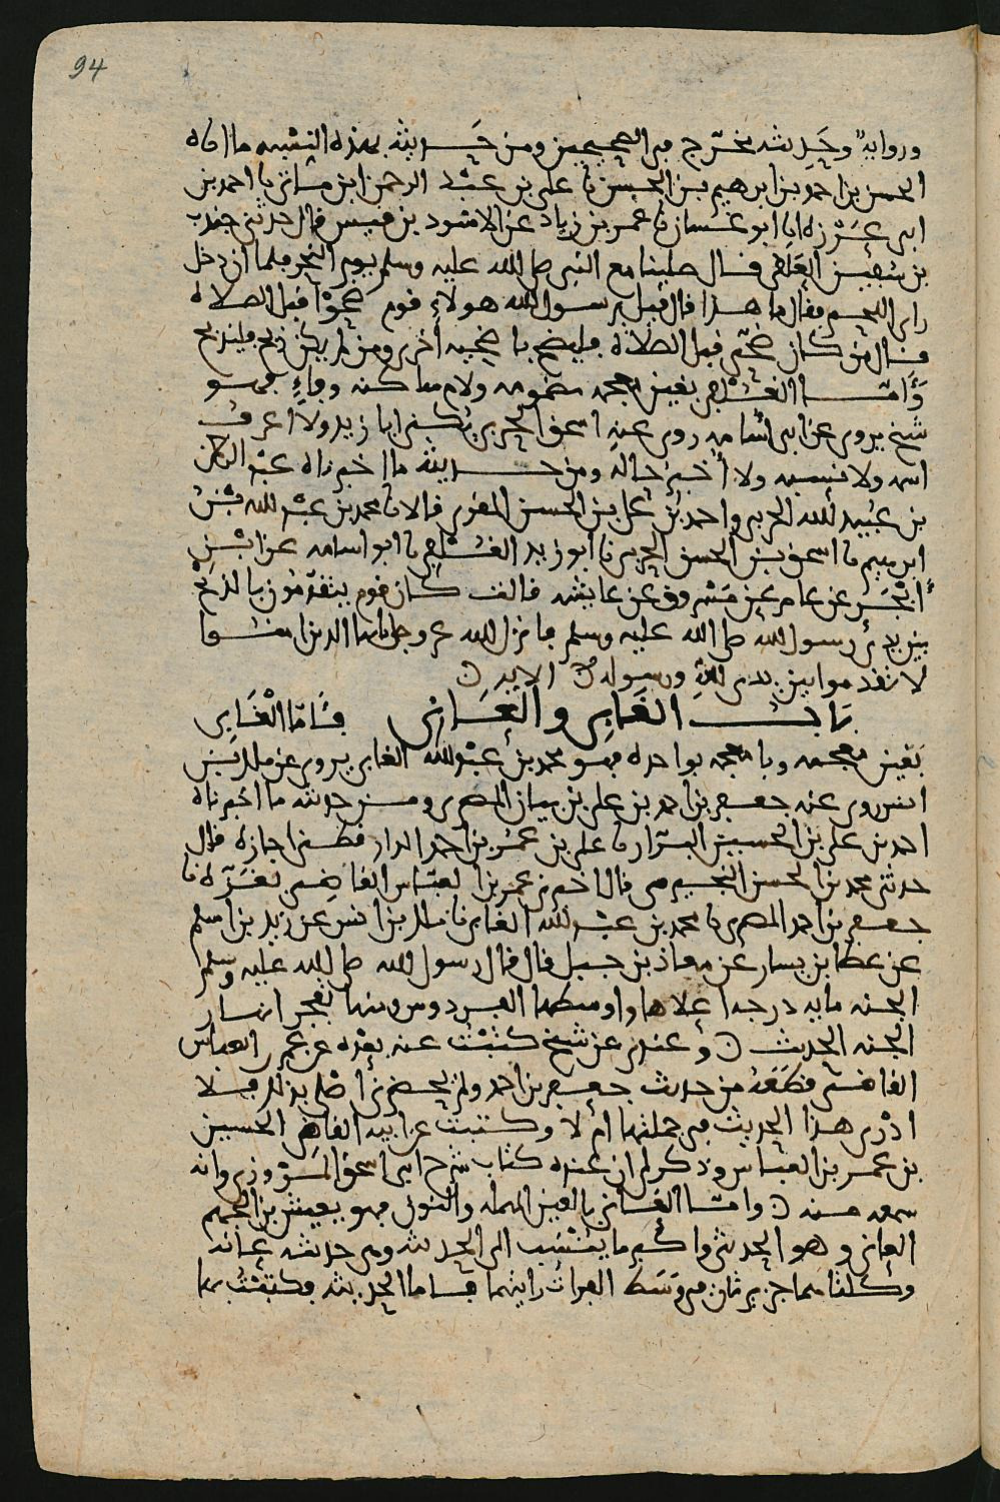 94
ورواية وحديثه مخرج في الصحيحين ومن حديثه بهذه النسبة ما اناه
الحسن بن احمد بن ابرهيم بن الحسن نا علي بن عبد الرحمن ابن ماتى نا احمد بن
ابي غرزه انا ابو غسان نا عمر بن زياد عن الاسود بن قيس قال حدثني جندب
بن سفين العلقي قال صلينا مع النبي صلى الله عليه وسلم يوم النحر فلما ان دخل
راى اللحم فقال ما هذا قال قيل يرسول الله هولاء قوم ضحوا قبل الصلاه
فقال من كان ضحى قبل الصلاة فليضح باضحيه اخرى ومن لم يكن ذبح فليذبح
وَأَمَّـــا الغُلْفي بغين معجمه مضمومه ولام ساكنه وفاءٍ فهو
شيخ يروي عن ابي اسامه روى عنه اسحق الحربي يكنى ابا زيد ولا اعرف
اسمه ولا نسبه ولا أَخبر حاله ومن حـــديثه ما اخبرناه عبد الرحمن
بن عُبيد الله الحربي واحمد بن علي بن الحسن المقري قالا نا محمد بن عبد الله بن
ابرهيم نا اسحق بن الحسن الحربي نا ابو زيد الغلفي نا ابو اسامه عن ابن
أَبْجَر عن عامر عن مسروق عن عايشه قالت كان قوم يتقدمون بالذبح
بين يدي رسول الله صلى الله عليه وسلم فانزل الله عز وجل يايها الذين امنوا
لا تقدموا بين يدي الله ورسوله الايه
بَابُ الغَابي والعَاني فَأَمَّا الْغَابي
بغين معجمه وبا معجمه بواحده فهو محمد بن عبد الله الغابي يروي عن ملك بن
انس روى عنه جعفر بن احمد بن علي بن بيان المصري ومن حديثه ما اخبرناه
احمد بن علي بن الحسين التوزي نا علي بن عمر بن احمد الدارقطني اجازه قال
حدثني محمد بن الحسن النجيرمي قال اخبرني عمر بن العباس القاضي بغزة نا
جعفر بن احمد المصري نا محمد بن عبد الله الغابي نا ملك بن انس عن زيد بن اسلم
عن عطا بن يسار عن معاذ بن جبل قال قال رسول الله صلى الله عليه وسلم
الجنه مايه درجه اعلاها واوسطها الفردوس ومنها تفجر انهار
الجنه الحديث وعندي عن شيخ كتبت عنه بغزه عن عمر العباس
القاضي قطعه من حديث جعفر بن احمد ولم يحضرني اصلي بذلك فلا
ادْري هذا الحديث في جملتها ام لا وكتبت عن ابنه القاضي الحسين
بن عمر بن العباس وذكر لي ان عنده كتاب شرح ابي اسحق المروزي وانه
سمعه منه وامـــا العاني بالعين المهمله والنون فهو يعيش بن الجهم
العاني وهو الحديثي واكثر ما يُنْسَب الى الحديثه وهي حديثه عانه
وكلتاهما جزيرتان في وَسَط الفرات رايتهما فاما الحديثه فكتبت بها